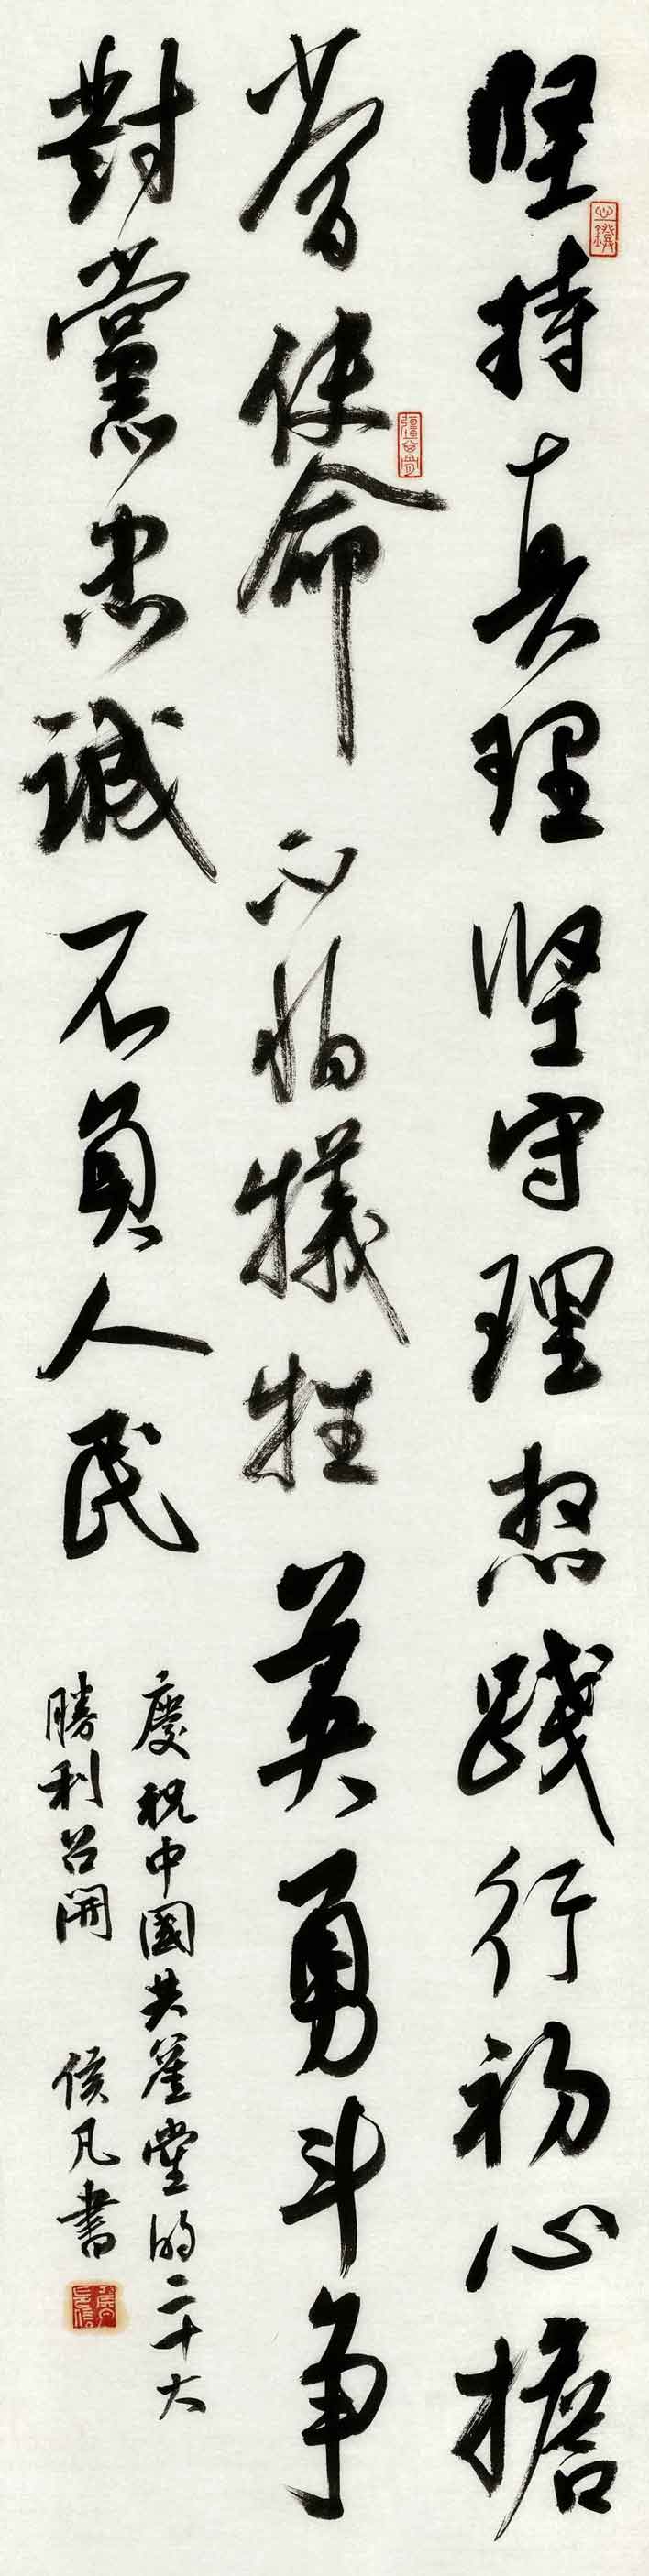 堅持真理堅守理想踐行初心擔
當使命不怕犧牲英勇斗争
對黨忠誠不負人民
慶祝中國共産黨的二十大
勝利召開 侯凡書